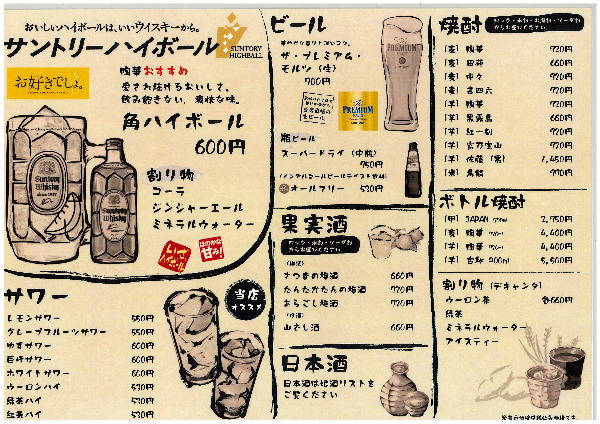 おいしいハイボールは、いいウイスキーから。
サントリーハイボール
SUNTORY
HIGHBALL
お好きでしょ。
おすすめ
愛され続けるおいしさ。
飲み飽きない、爽快な味。
角ハイボール
600円
割り物
コーラ
ジンジャーエール
ミネラルウォーター
Suntory
Whisky
ほのかな
甘み!
サワー
当店
オススメ
レモンサワー 550円
グレープフルーツサワー 550円
ゆずサワー 600円
巨峰サワー 600円
ホワイトサワー 600円
ウーロンハイ 530円
緑茶ハイ 530円
紅茶ハイ 530円
ビール
ザ・プレミアム・
モルツ(生)
700円
PREMIUM
瓶ビール
スーパードライ(中瓶)
750円
(ノンアルコールビールテイスト飲料)
オールフリー 530円
果実酒
ロック・水わり・ソーダわり
からお選びください
(梅酒)
さつまの梅酒 660円
たんたかたんの梅酒 770円
あらごし梅酒 770円
山ぶし酒 660円
日本酒
日本酒は地酒リストを
ご覧ください
焼酎
ロック・水わり・お湯わり・ソーダわり
からお選びください
(麦) 770円
(麦) 田苑 660円
(麦) 中々 770円
(麦) 吉四六 970円
(芋) 770円
(芋) 黒霧島 660円
(芋) 紅一刻 770円
(芋) 富乃宝山 970円
(芋) 佐藤(黒) 1,450円
(米) 鳥飼 970円
ボトル焼酎
(甲) JAPAN 2,750円
(麦) 4,400円
(芋) 4,400円
(芋) 900ml 5,500円
割り物(デキャンタ)
ウーロン茶 各660円
緑茶
ミネラルウォーター
アイスティー